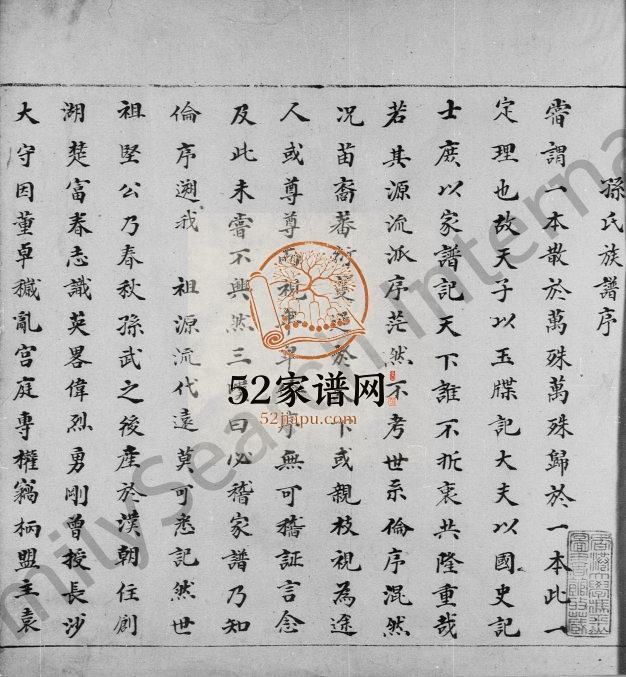 孫氏族譜序
甞謂一本散於萬殊萬殊歸於一本此一
定理也故天子以玉牒記大夫以國史記
士庶以家譜記天下誰不折衷共隆重哉
若其源流派序茫然不考世系倫序混然
况苗裔蕃衍
下或親枝視為途
人或尊尊
無可稽証言念
及此未甞不興然三
曰必稽家譜乃知
倫序遡我 祖源流代遠莫可悉記然世
祖堅公乃春秋孫武之後産於漢朝住創
湖楚富春志識英畧偉烈勇剛曾授長沙
大守因董卓穢亂宫庭專權竊柄盟主袁
52家谱网
52jiapu.com
milySearch Interna